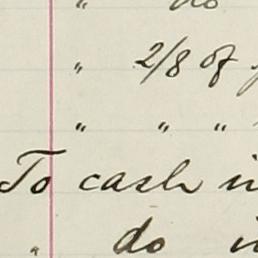 " do
" 2/8 of
" " "
To cash
" do